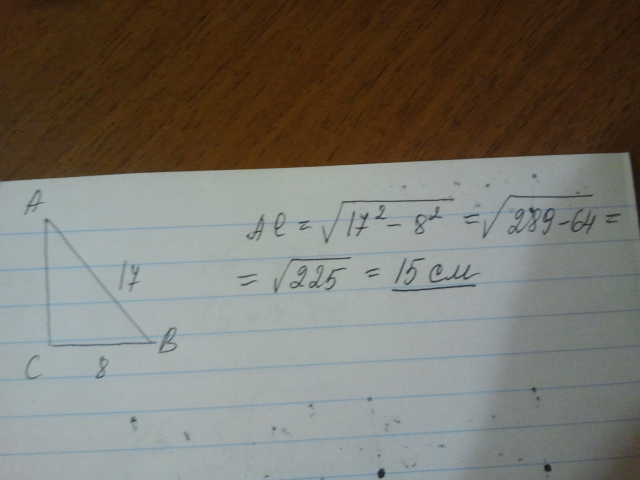 A
17
C
8
B
AC = √17² - 8² = √289-64 =
= √225 = 15 см